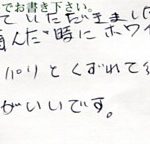 でお書き下さい。
ていただきまし
んだ時にホワ
パリとくずれて
がいいです。